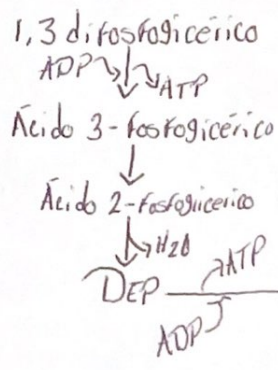 1,3 difosfogicérico
ADP ATP
Ácido 3-fosfogicérico
Ácido 2-fosfogiicerico
H2O
DEP
ATP
ADP